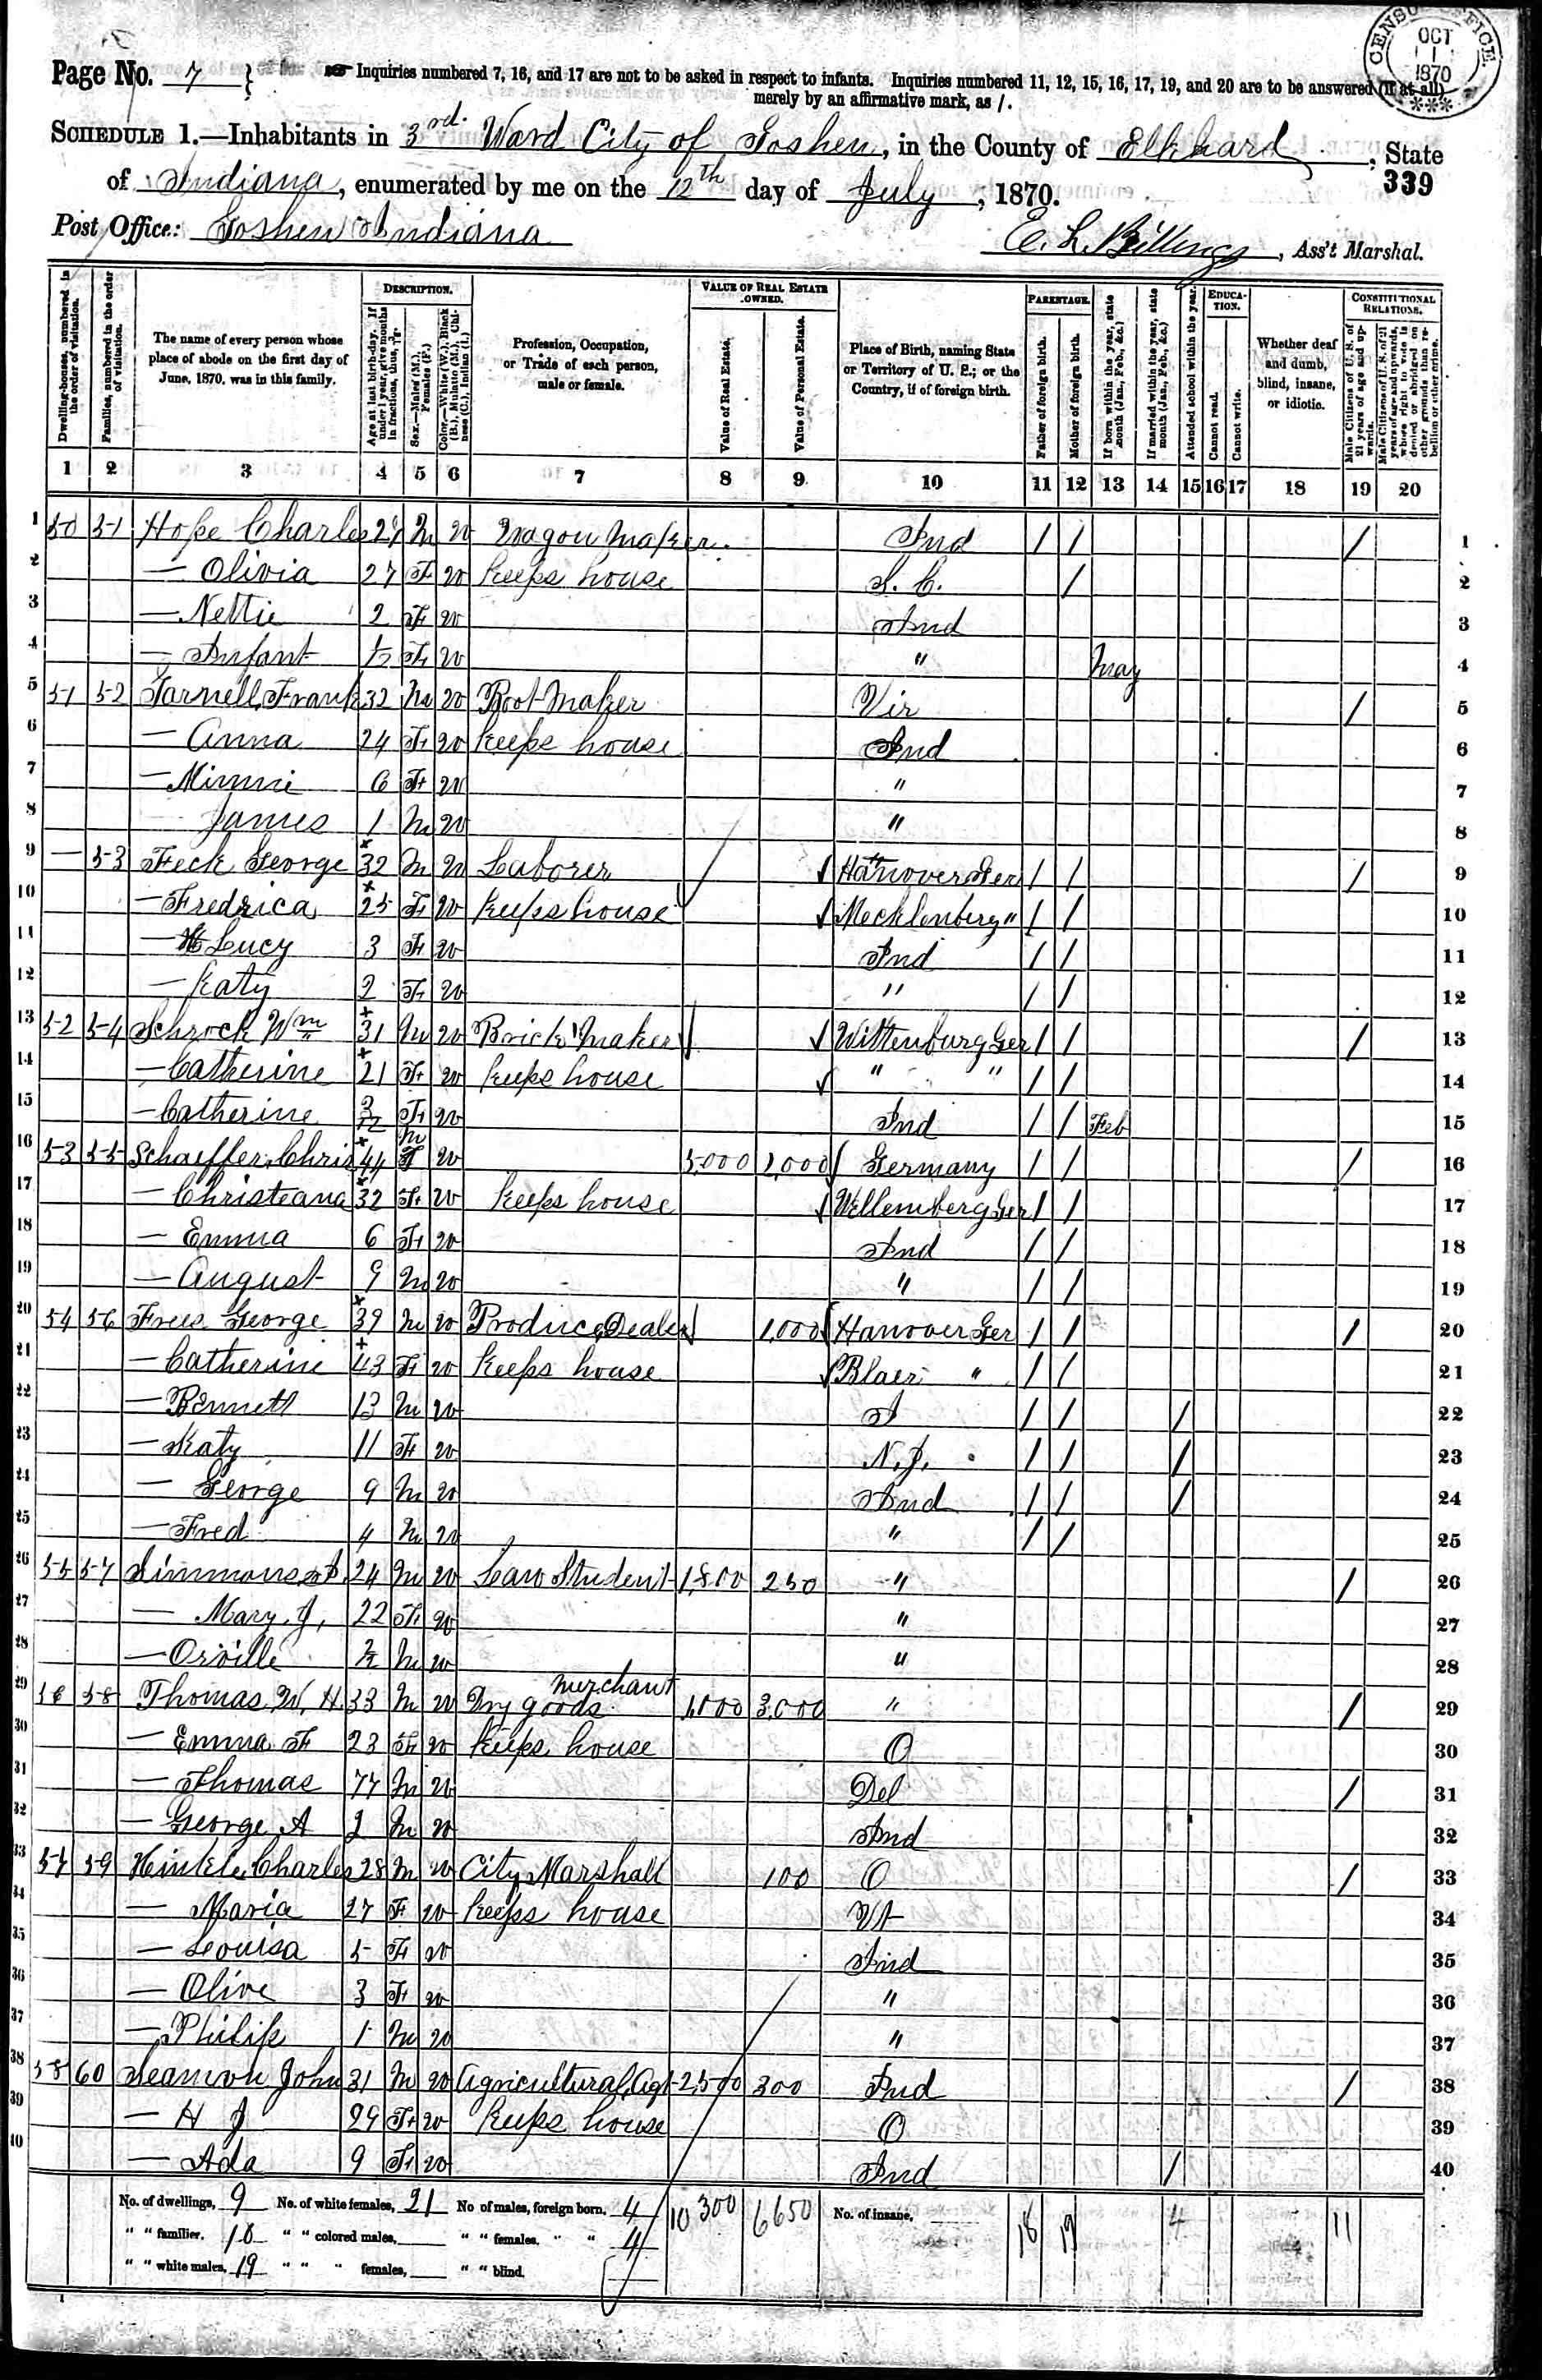 CENSUS OFFICE OCT 1 1870
Page No. 7 } Inquiries numbered 7, 16, and 17 are not to be asked in respect to infants. Inquiries numbered 11, 12, 15, 16, 17, 19, and 20 are to be answered (if at all)
merely by an affirmative mark, as /.
SCHEDULE 1.—Inhabitants in 3rd. Ward City of Goshen, in the County of Elkhard, State
of Indiana, enumerated by me on the 12th day of July, 1870.
339
Post Office: Goshen Indiana
E. L. Billings, Ass't Marshal.
DESCRIPTION. VALUE OF REAL ESTATE OWNED. PARENTAGE. EDUCATION. CONSTITUTIONAL RELATIONS.
Dwelling-houses, numbered in the order of visitation.
Families, numbered in the order of visitation.
The name of every person whose place of abode on the first day of June, 1870, was in this family.
Age at last birth-day. If under 1 year, give months in fractions, thus,
Sex.—Males (M.), Females (F.)
Color.—White (W.), Black (B.), Mulatto (M.), Chinese (C.), Indian (I.)
Profession, Occupation, or Trade of each person, male or female.
Value of Real Estate.
Value of Personal Estate.
Place of Birth, naming State or Territory of U. S.; or the Country, if of foreign birth.
Father of foreign birth.
Mother of foreign birth.
If born within the year, state month (Jan., Feb., &c.)
If married within the year, state month (Jan., Feb., &c.)
Attended school within the year.
Cannot read.
Cannot write.
Whether deaf and dumb, blind, insane, or idiotic.
Male Citizens of U. S. of 21 years of age and upwards.
Male Citizens of U. S. of 21 years of age and upwards, whose right to vote is denied or abridged on other grounds than rebellion or other crime.
1 2 3 4 5 6 7 8 9 10 11 12 13 14 15 16 17 18 19 20
1 50 51 Hope Charles 27 M W Wagon Maker. Ind / / / 1
2 — Olivia 27 F W Keeps house S. C. / 2
3 — Nettie 2 F W Ind 3
4 — Infant F W " May 4
5 51 52 Frank 32 M W Boot Maker Vir / 5
6 — Anna 24 F W Keeps house Ind 6
7 — Minnie 6 F W " 7
8 James 1 M W " 8
9 — 53 Feck George 32 M W Laborer Hanover Ger / / / 9
10 — Fredrica 25 F W Keeps house Mecklenberg " / / 10
11 — Lucy 3 F W Ind / / 11
12 — Katy 2 F W " / / 12
13 52 54 Schrock Wm 31 M W Brick Maker Wittenburg Ger / / / 13
14 — Catherine 21 F W Keeps house " " / / 14
15 — Catherine F W Ind / / Feb 15
16 53 55 Schaeffer, Chris 44 M W 5,000 2,000 Germany / / / 16
17 — Christeana 32 F W Keeps house Wellemberg Ger / / 17
18 — Emma 6 F W Ind / / 18
19 — August 9 M W " / / 19
20 54 56 Frees George 39 M W Produce Dealer 1,000 Hanover Ger / / / 20
21 — Catherine 43 F W Keeps house " / / 21
22 — Bennett 13 M W / / / 22
23 — Katy 11 F W N. J. / / / 23
24 — George 9 M W Ind / / / 24
25 — Fred 4 M W " / / 25
26 55 57 Simmons 24 M W Law Student 1,800 250 " / 26
27 — Mary J. 22 F W " 27
28 — Orville M W " 28
29 56 58 Thomas W. H. 33 M W Dry goods merchant 1,000 3,000 " / 29
30 — Emma F 23 F W Keeps house O 30
31 — Thomas 77 M W Del / 31
32 — George A 2 M W Ind 32
33 57 59 Hinkle, Charles 28 M W City Marshall 100 O / 33
34 — Maria 27 F W Keeps house Vt 34
35 — Louisa 5 F W Ind 35
36 — Olive 3 F W " 36
37 — Philip 1 M W " 37
38 58 60 Seamon John 31 M W Agricultural Agt 2,500 300 Ind / 38
39 — H J 29 F W Keeps house O 39
40 — Ada 9 F W Ind / 40
No. of dwellings, 9 No. of white females, 21 No of males, foreign born, 4 10 300 6650 No. of insane, 18 19 4 11
" " families, 10 " " colored males, " " females, " " 4
" " white males, 19 " " " females, " " blind.